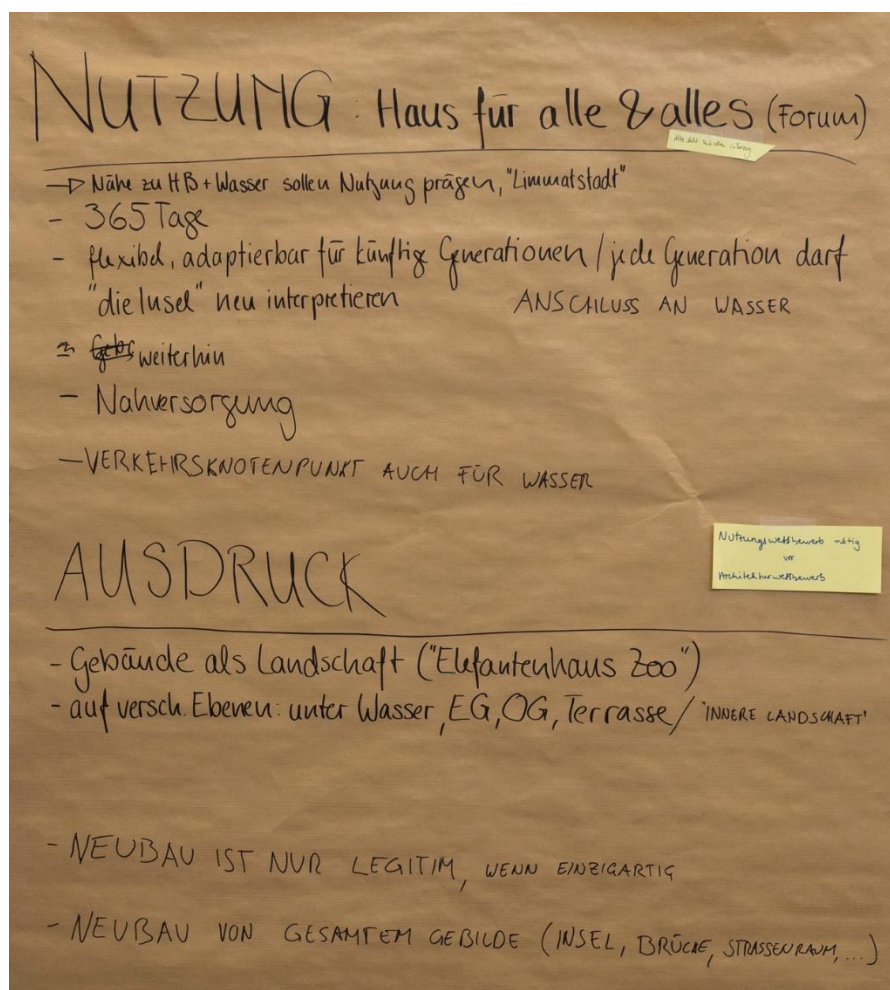 NUTZUNG: Haus für alle & alles (Forum)
→ Nähe zu HB + Wasser sollen Nutzung prägen, "Limmatstadt"
- 365 Tage
- flexibel, adaptierbar für künftige Generationen / jede Generation darf
"die Insel" neu interpretieren
ANSCHLUSS AN WASSER
weiterhin
- Nahversorgung
- VERKEHRSKNOTENPUNKT AUCH FÜR WASSER
AUSDRUCK
Nutzungswettbewerb nötig
vor
Architekturwettbewerb
- Gebäude als Landschaft ("Elefantenhaus Zoo")
- auf versch. Ebenen: unter Wasser, EG, OG, Terrasse / 'INNERE LANDSCHAFT'
- NEUBAU IST NUR LEGITIM, WENN EINZIGARTIG
- NEUBAU VON GESAMTEM GEBILDE (INSEL, BRÜCKE, STRASSENRAUM, ...)